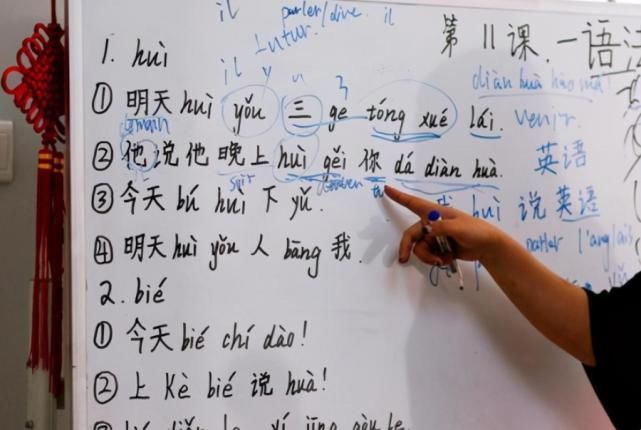 il parler/dire. il
Futur.
第 11 课. 一语法
1. huì
il y a
diàn huà hào mǎ!
① 明天 huì yǒu 三 ge tóng xué lái. venir.
demain
② 他说他晚上 huì gěi 你 dǎ diàn huà. 英语
soir tu
③ 今天 bú huì 下 yǔ. huì 说英语
parler l'anglais
④ 明天 huì yǒu 人 bāng 我.
2. bié
① 今天 bié chí dào!
② 上 Kè bié 说 huà!